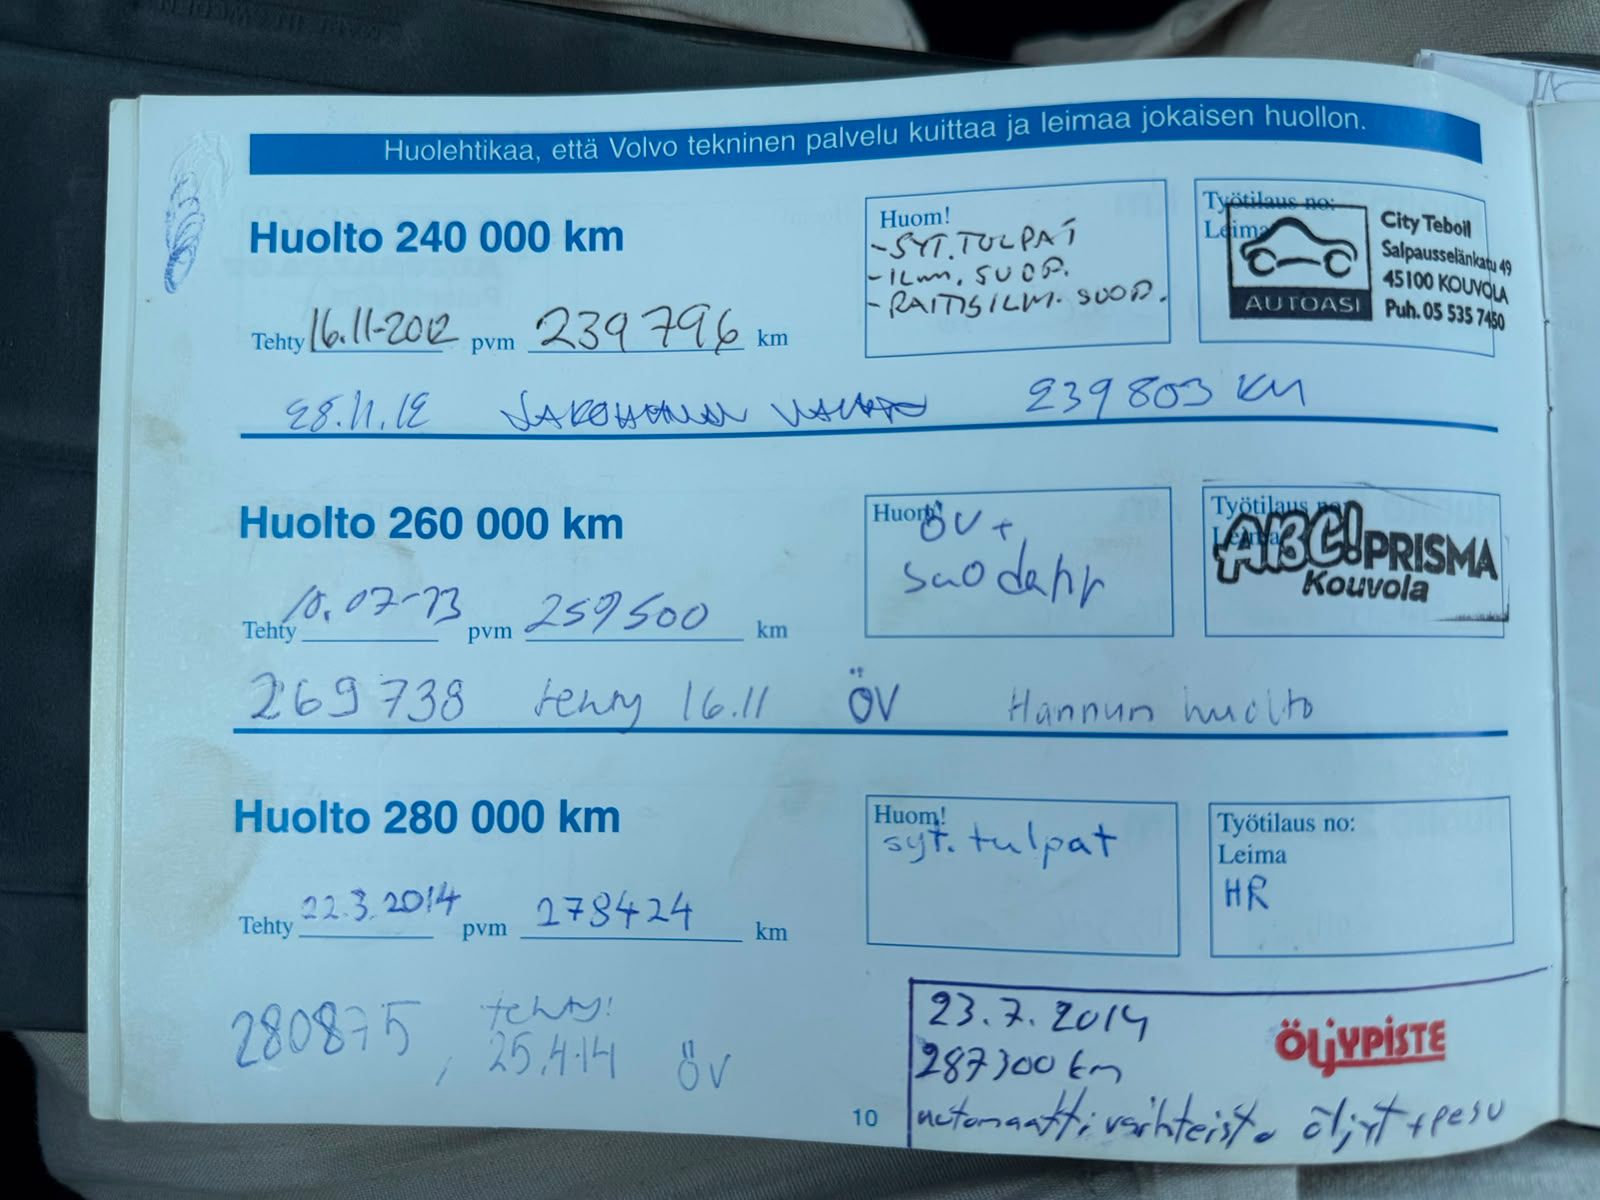 Huolehtikaa, että Volvo tekninen palvelu kuittaa ja leimaa jokaisen huollon.
Huolto 240 000 km
Tehty 16.11-2012 pvm 239796 km
Huom!
-SYT.TULPAT
-ILM. SUOD.
-RAITISILM. SUOD.
Työtilaus no:
Leima
AUTOASI
City Teboil
Salpausselänkatu 49
45100 KOUVOLA
Puh. 05 535 7450
28.11.12 239803 KM
Huolto 260 000 km
Tehty 10.07-13 pvm 259500 km
Huom!
ÖV +
suodatin
Työtilaus no:
Leima
ABC! PRISMA
Kouvola
269738 tehty 16.11 ÖV Hannun huolto
Huolto 280 000 km
Tehty 22.3.2014 pvm 278424 km
Huom!
syt. tulpat
Työtilaus no:
Leima
HR
280875, tehty!
25.4.14 ÖV
23.7.2014
287300 km
ÖLJYPISTE
automaattivaihteisto öljyt + pesu
10